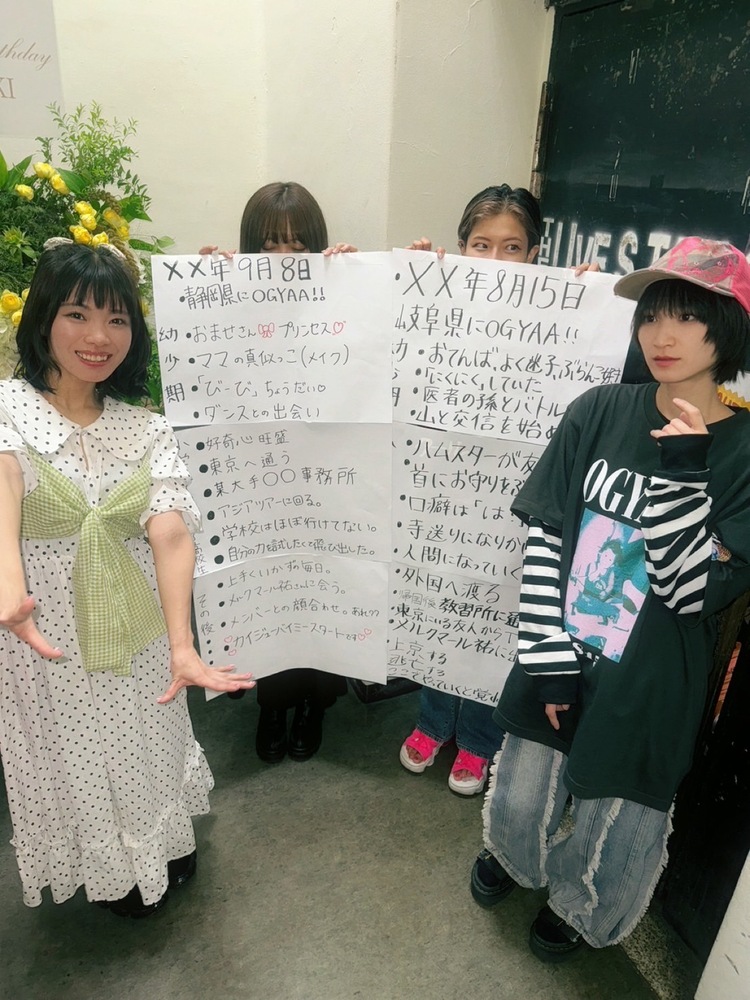 thday
KI
××年9月8日
・静岡県にOGYAA!!
幼少期
・おませさん🎀プリンセス♡
・ママの真似っこ(メイク)
・「びーび」ちょうだい♡
・ダンスとの出会い
●好奇心旺盛
●東京へ通う
●某大手○○事務所
●アジアツアーに回る。
●学校はほぼ行けてない。
●自分の力を試したくて飛び出した。
高校生
その後
・上手くいかず毎日。
・メルクマール祐さんに会う。
・メンバーとの顔合わせ。あれ??
♡カイジューバイミースタートです♡♡
・××年8月15日
岐阜県にOGYAA!!
・おてんば、よく迷子、ぶらんこ好き
・「にくにく」していた
・医者の孫とバトル
・山と交信を始め
・ハムスターが友
・首にお守りを
・口癖は「は
・寺送りになりか
・人間になっていく
・外国へ渡る
帰国後 教習所に
東京にいる友人から
・メルクマール祐に出
上京する
逃亡する
THE LIVE ST
OGYA